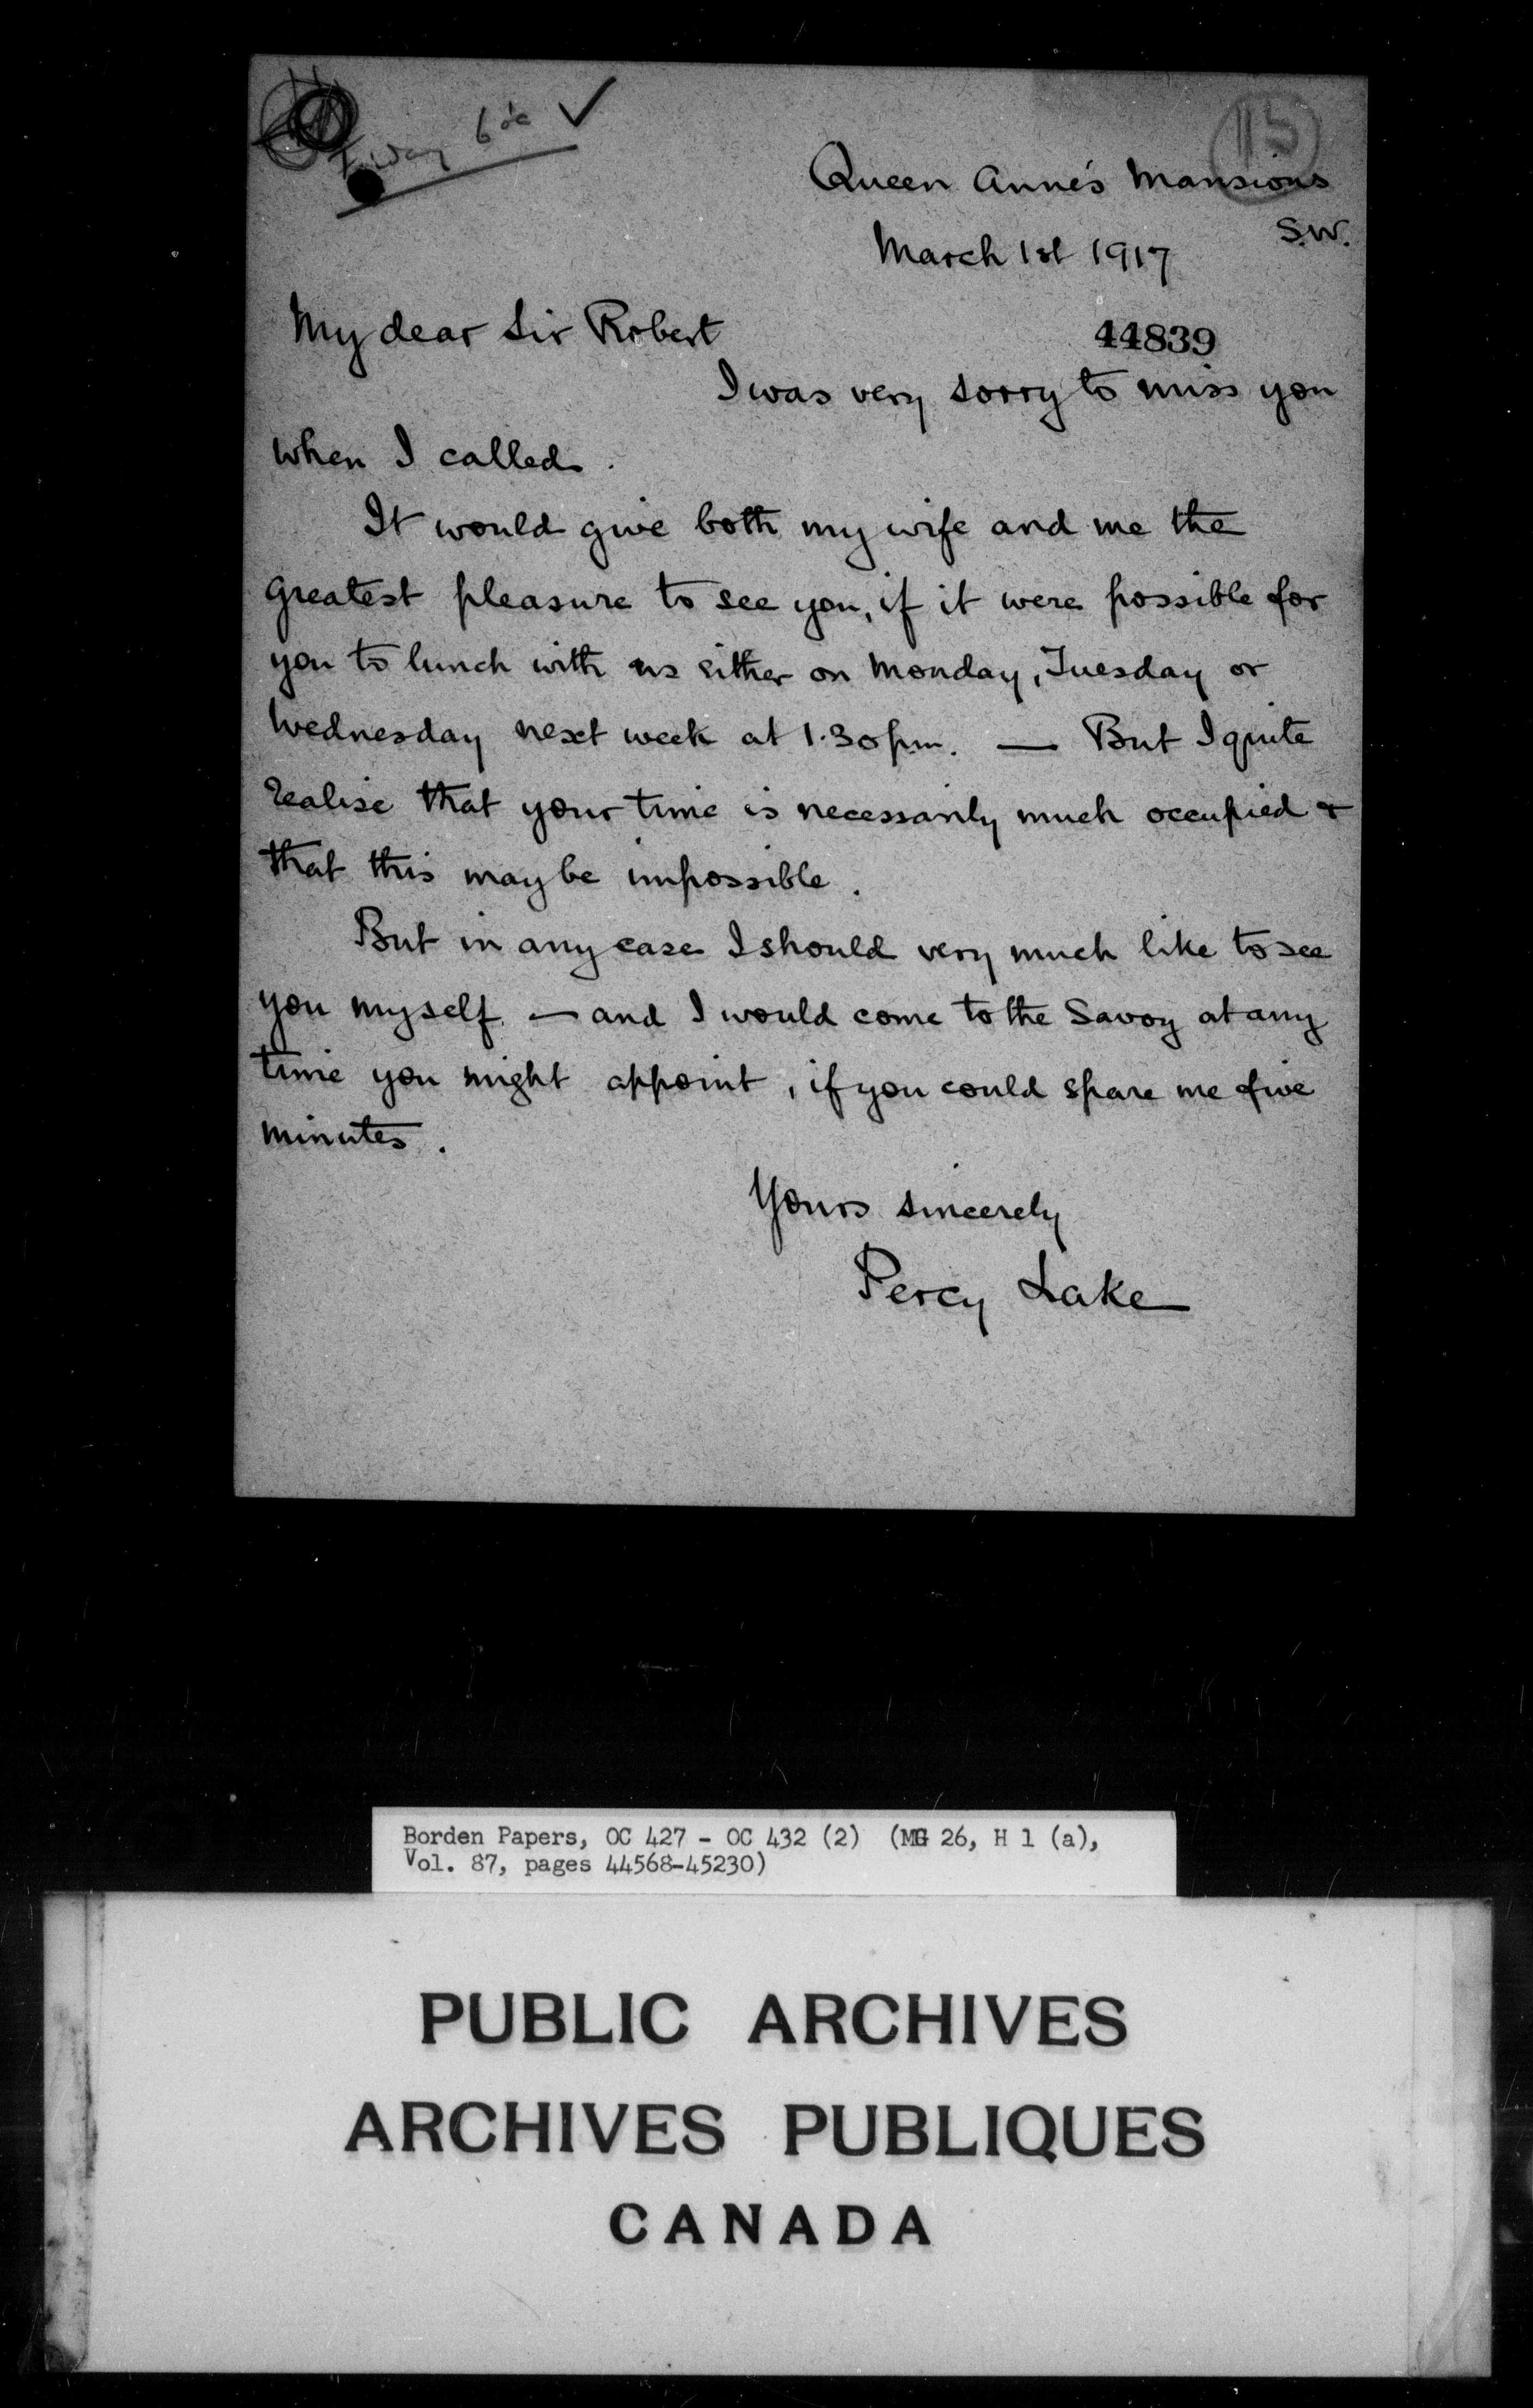 115
Queen Anne's Mansions
S.W.
March 1st 1917
My dear Sir Robert
44839
I was very sorry to miss you
when I called.
It would give both my wife and me the
greatest pleasure to see you, if it were possible for
you to lunch with us either on Monday, Tuesday or
Wednesday next week at 1.30 p.m. — But I quite
realise that your time is necessarily much occupied &
that this may be impossible.
But in any case I should very much like to see
you myself — and I would come to the Savoy at any
time you might appoint, if you could spare me five
minutes.
Yours sincerely
Percy Lake
Borden Papers, OC 427 - OC 432 (2) (MG 26, H 1 (a),
Vol. 87, pages 44568-45230)
PUBLIC ARCHIVES
ARCHIVES PUBLIQUES
CANADA